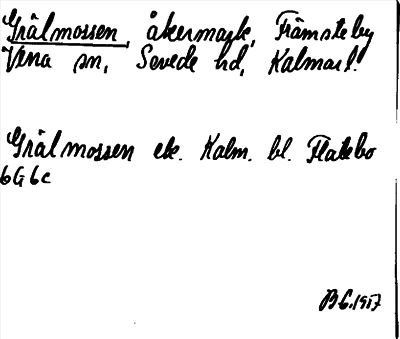 Grålmossen, åkermark, Främsteby
Vena sn, Sevede hd, Kalmar l.
Grålmossen ek. Kalm. bl. Flatebo
6G 6c
BG.1957